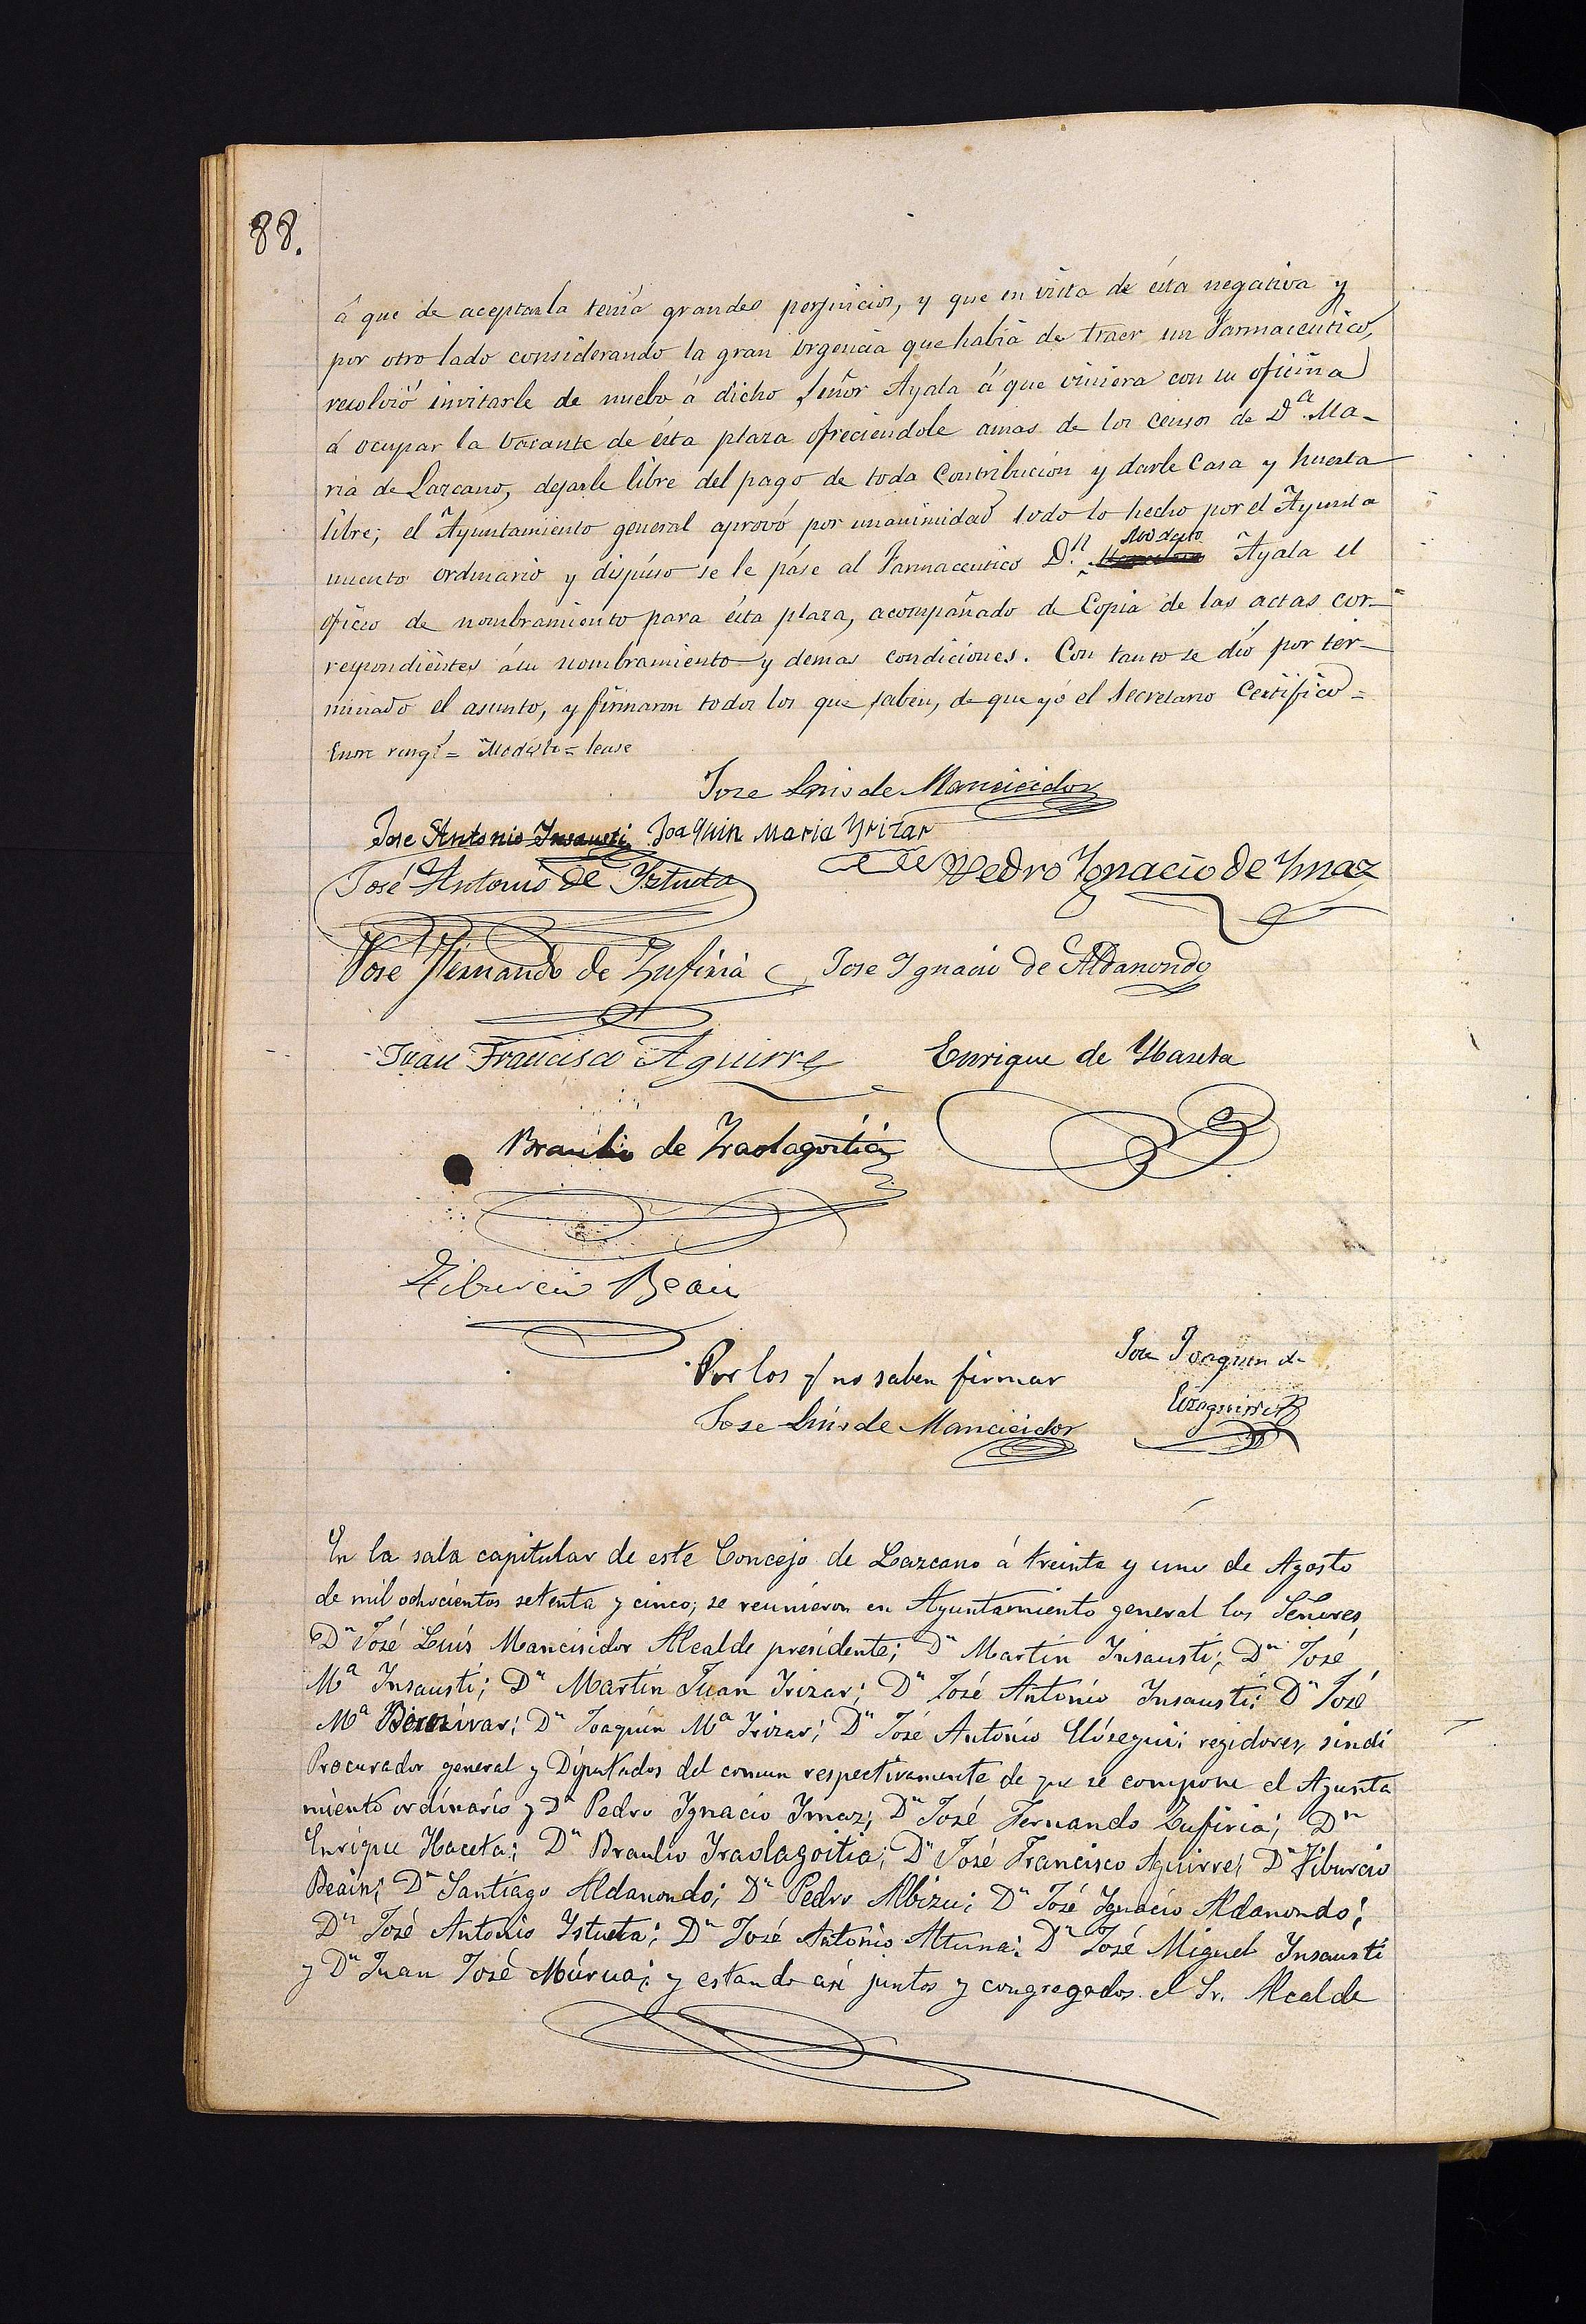 88.
á que de aceptarla tenía grandes perjuicios, y que en vista de ésta negativa y
por otro lado considerando la gran urgencia que habia de traer un Farmaceutico,
resolvió invitarle de nuebo á dicho Señor Ayala á que viniera con su oficina
á ocupar la vacante de ésta plaza ofreciendole amas de los censos de Dª. Ma-
ria de Lazcano, dejarle libre del pago de toda Contribución y darle Casa y huerta
libre; el Ayuntamiento general aprovó por unanimidad todo lo hecho por el Ayunta
miento ordinario y dispuso se le páse al Farmaceutico D.n Modesto Ayala el
oficio de nombramiento para ésta plaza, acompañado de Copia de las actas cor-
respondientes á su nombramiento y demas condiciones. Con tanto se dió por ter-
minado el asunto, y firmaron todos los que saben, de que yó el Secretario Certifico=
Entre rengs = Modesto = lease
Jose Luis de Mancicidor
Jose Antonio Insausti Joaquin Maria Yrizar
José Antonio de Yztueta Pedro Ygnacio de Ymaz
José Fernando de Zufiria Jose Ygnacio de Aldanondo
Juan Francisco Aguirre Enrique de Ybaseta
Braulio de Yraolagoitia
Tiburcio Beain
Por los q no saben firmar Jose Joaquin de
Jose Luis de Mancicidor Eizaguirre
En la sala capitular de este Concejo de Lazcano á treinta y uno de Agosto
de mil ochocientos setenta y cinco; se reunieron en Ayuntamiento general los Señores
Dn José Luís Mancisidor Alcalde presidente; Dn Martín Insausti; Dn José
Mª Insausti; Dn Martín Juan Irizar; Dn José Antonío Insausti; Dn José
Mª Berasivar; Dn Joaquín Mª Irizar; Dn José Antonío Elósegui; regidores, sindi
Procurador general y Diputados del comun respectivamente de que se compone el Ayunta
miento ordinario y Dn Pedro Ygnacio Ymaz; Dn José Fernando Zufiria; Dn
Enrique Ybaceta; Dn Braulio Yraolagoitia; Dn José Francisco Aguirre; Dn Tiburcio
Beain; Dn Santiágo Aldanondo; Dn Pedro Albizu; Dn José Ygnacio Aldanondo;
Dn José Antonio Ystueta; Dn José Antonio Altuna; Dn José Miguel Ynsausti
y Dn Juan José Múrua; y estando así juntos y congregados el Sr. Alcalde